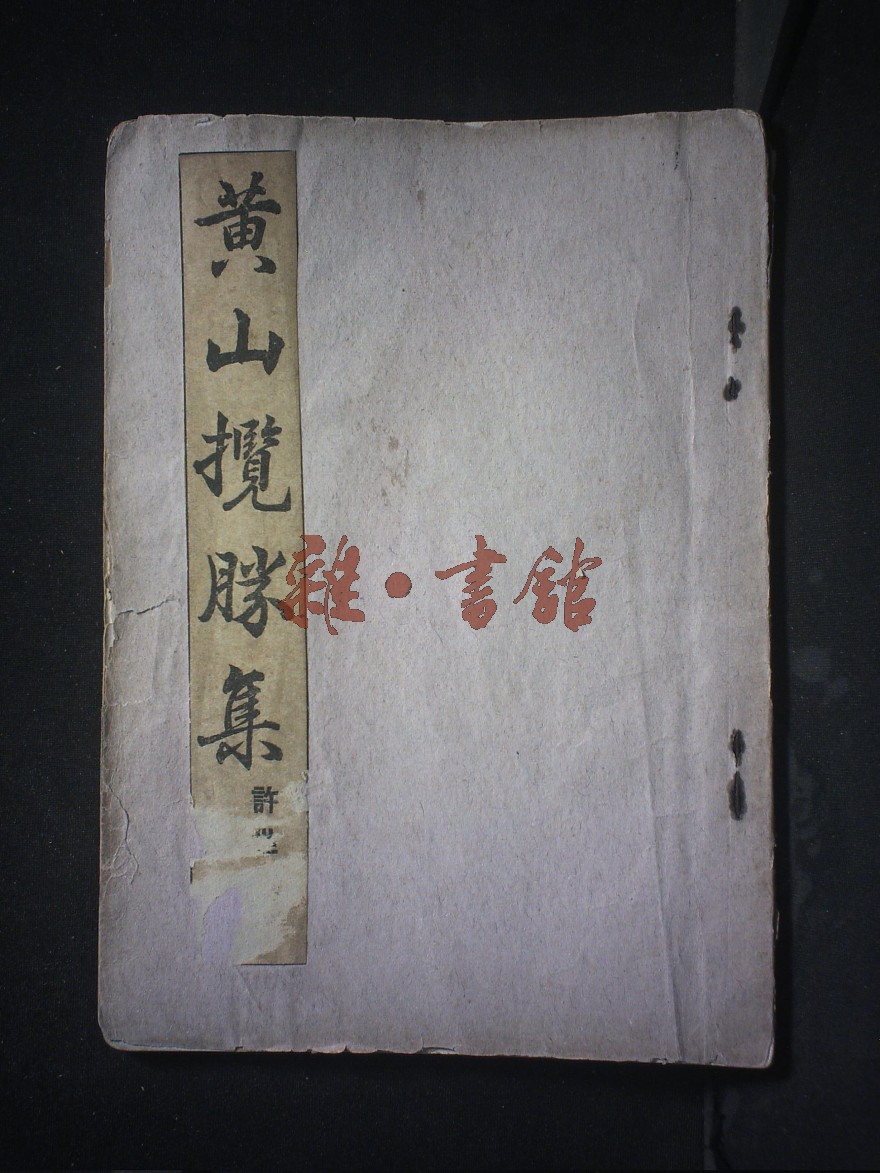 黄山攬勝集
許
雜·書館